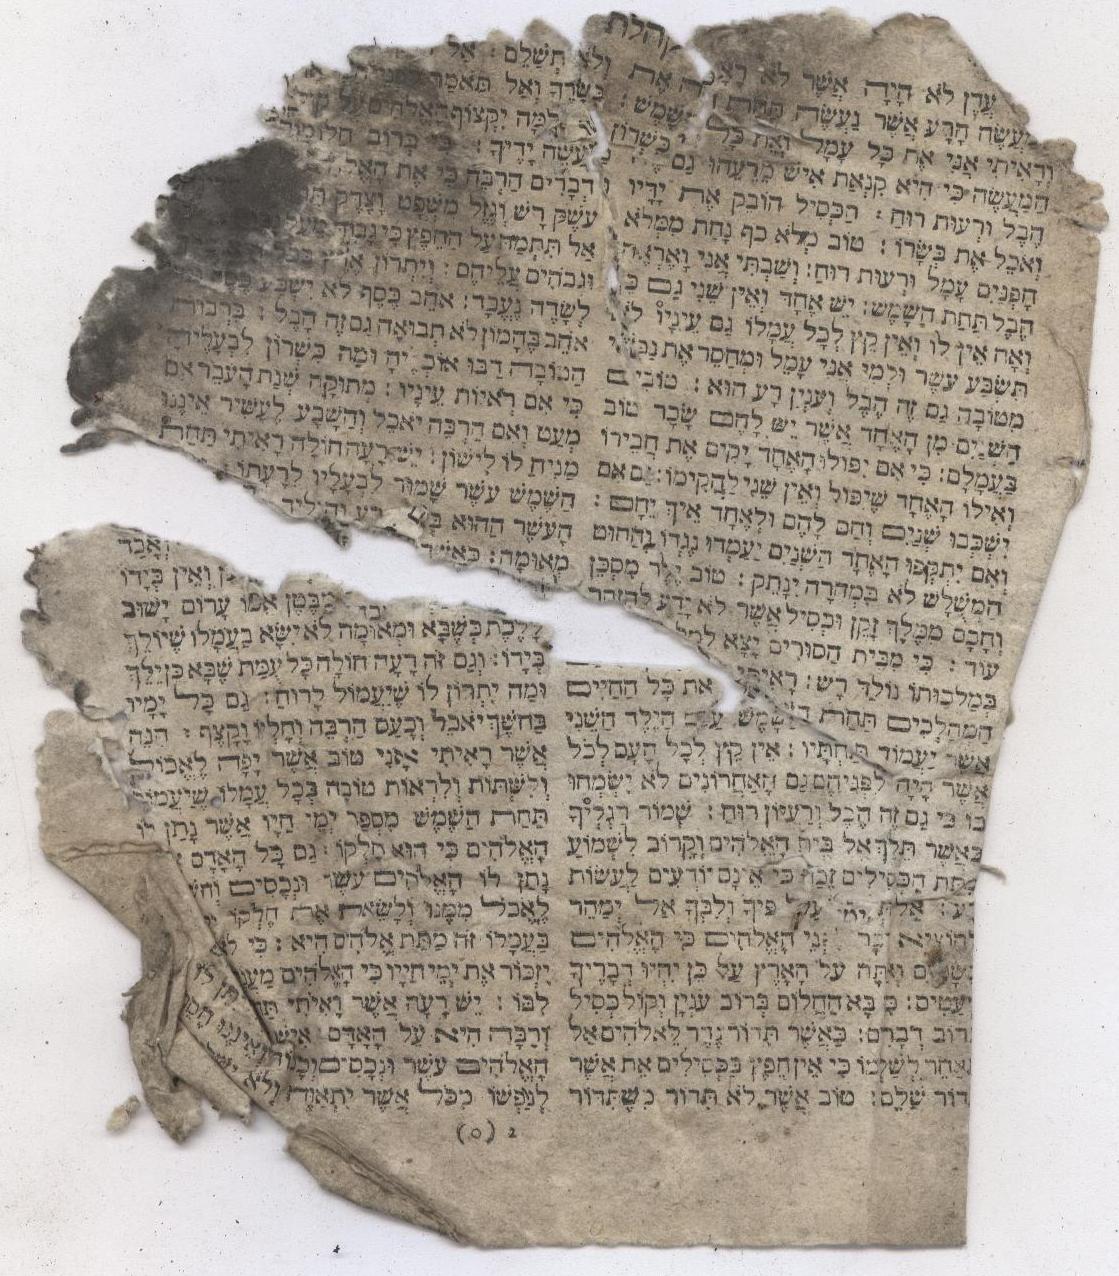 קהלת
עדן לא היה אשר לא ראה את
המעשה הרע אשר נעשה תחת השמש :
וראיתי אני את כל עמל ואת כל כשרון
המעשה כי היא קנאת איש מרעהו גם זה
הבל ורעות רוח : הכסיל חובק את ידיו
ואכל את בשרו : טוב מלא כף נחת ממלא
חפנים עמל ורעות רוח : ושבתי אני ואראה
הבל תחת השמש : יש אחד ואין שני גם
ואח אין לו ואין קץ לכל עמלו גם עיניו לא
תשבע עשר ולמי אני עמל ומחסר את נפשי
מטובה גם זה הבל וענין רע הוא : טובים
השנים מן האחד אשר יש להם שכר טוב
בעמלם : כי אם יפולו האחד יקים את חבירו
ואילו האחד שיפול ואין שני להקימו : גם אם
ישכבו שנים וחם להם ולאחד איך יחם :
ואם יתקפו האחד השנים יעמדו נגדו והחוט
המשולש לא במהרה ינתק : טוב ילד מסכן
וחכם ממלך זקן וכסיל אשר לא ידע להזהר
עוד : כי מבית הסורים יצא למלך
במלכותו נולד רש : ראיתי את כל החיים
המהלכים תחת השמש עם הילד השני
אשר יעמוד תחתיו : אין קץ לכל העם לכל
אשר היה לפניהם גם האחרונים לא ישמחו
בו כי גם זה הבל ורעיון רוח : שמור רגליך
כאשר תלך אל בית האלהים וקרוב לשמוע
מתת הכסילים זבח כי אינם יודעים לעשות
רע : אל תבהל על פיך ולבך אל ימהר
להוציא דבר לפני האלהים כי האלהים
בשמים ואתה על הארץ על כן יהיו דבריך
מעטים : כי בא החלום ברוב ענין וקול כסיל
ברוב דברים : כאשר תדור נדר לאלהים אל
תאחר לשלמו כי אין חפץ בכסילים את אשר
תדור שלם : טוב אשר לא תדור משתדור
ולא תשלם : אל
בשרך ואל תאמר
למה יקצוף האלהים על
מעשה ידיך : כי ברוב חלומות
ודברים הרבה כי את האלהים
עשק רש וגזל משפט וצדק
אל תתמה על החפץ כי גבוה
וגבוהים עליהם : ויתרון ארץ
לשדה נעבד : אהב כסף לא ישבע כסף
אהב בהמון לא תבואה גם זה הבל : ברבות
הטובה רבו אוכליה ומה כשרון לבעליה
כי אם ראיות עיניו : מתוקה שנת העבד אם
מעט ואם הרבה יאכל והשבע לעשיר איננו
מניח לו לישון : יש רעה חולה ראיתי תחת
השמש עשר שמור לבעליו לרעתו :
העשר ההוא רע והוליד
מאומה : כאשר
מבטן אמו ערום ישוב
ללכת כשבא ומאומה לא ישא בעמלו שיולך
בידו : וגם זה רעה חולה כל עמת שבא כן ילך
ומה יתרון לו שיעמול לרוח : גם כל ימיו
בחשך יאכל וכעס הרבה וחליו וקצף : הנה
אשר ראיתי אני טוב אשר יפה לאכול
ולשתות ולראות טובה בכל עמלו שיעמול
תחת השמש מספר ימי חייו אשר נתן לו
האלהים כי הוא חלקו : גם כל האדם
נתן לו האלהים עשר ונכסים
לאכל ממנו ולשאת את חלקו
בעמלו זה מתת אלהים היא : כי לא
יזכור את ימי חייו כי האלהים מענה
לבו : יש רעה אשר ראיתי תחת
ורבה היא על האדם : איש
האלהים עשר ונכסים וכבוד
לנפשו מכל אשר יתאוה ולא
2 (ס)